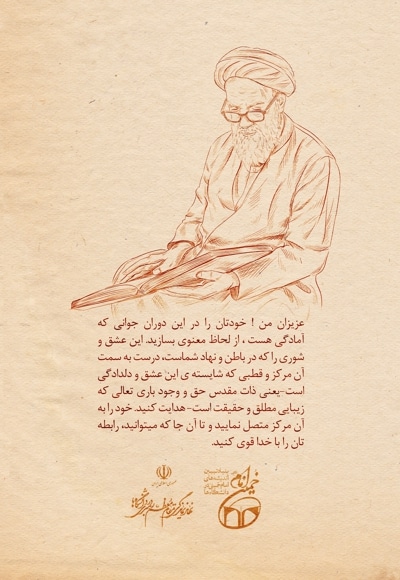 عزیزان من ! خودتان را در این دوران جوانی که
آمادگی هست ، از لحاظ معنوی بسازید. این عشق و
شوری را که در باطن و نهاد شماست، درست به سمت
آن مرکز و قطبی که شایسته ی این عشق و دلدادگی
است-یعنی ذات مقدس حق و وجود باری تعالی که
زیبایی مطلق و حقیقت است-هدایت کنید. خود را به
آن مرکز متصل نمایید و تا آن جا که میتوانید، رابطه
تان را با خدا قوی کنید.